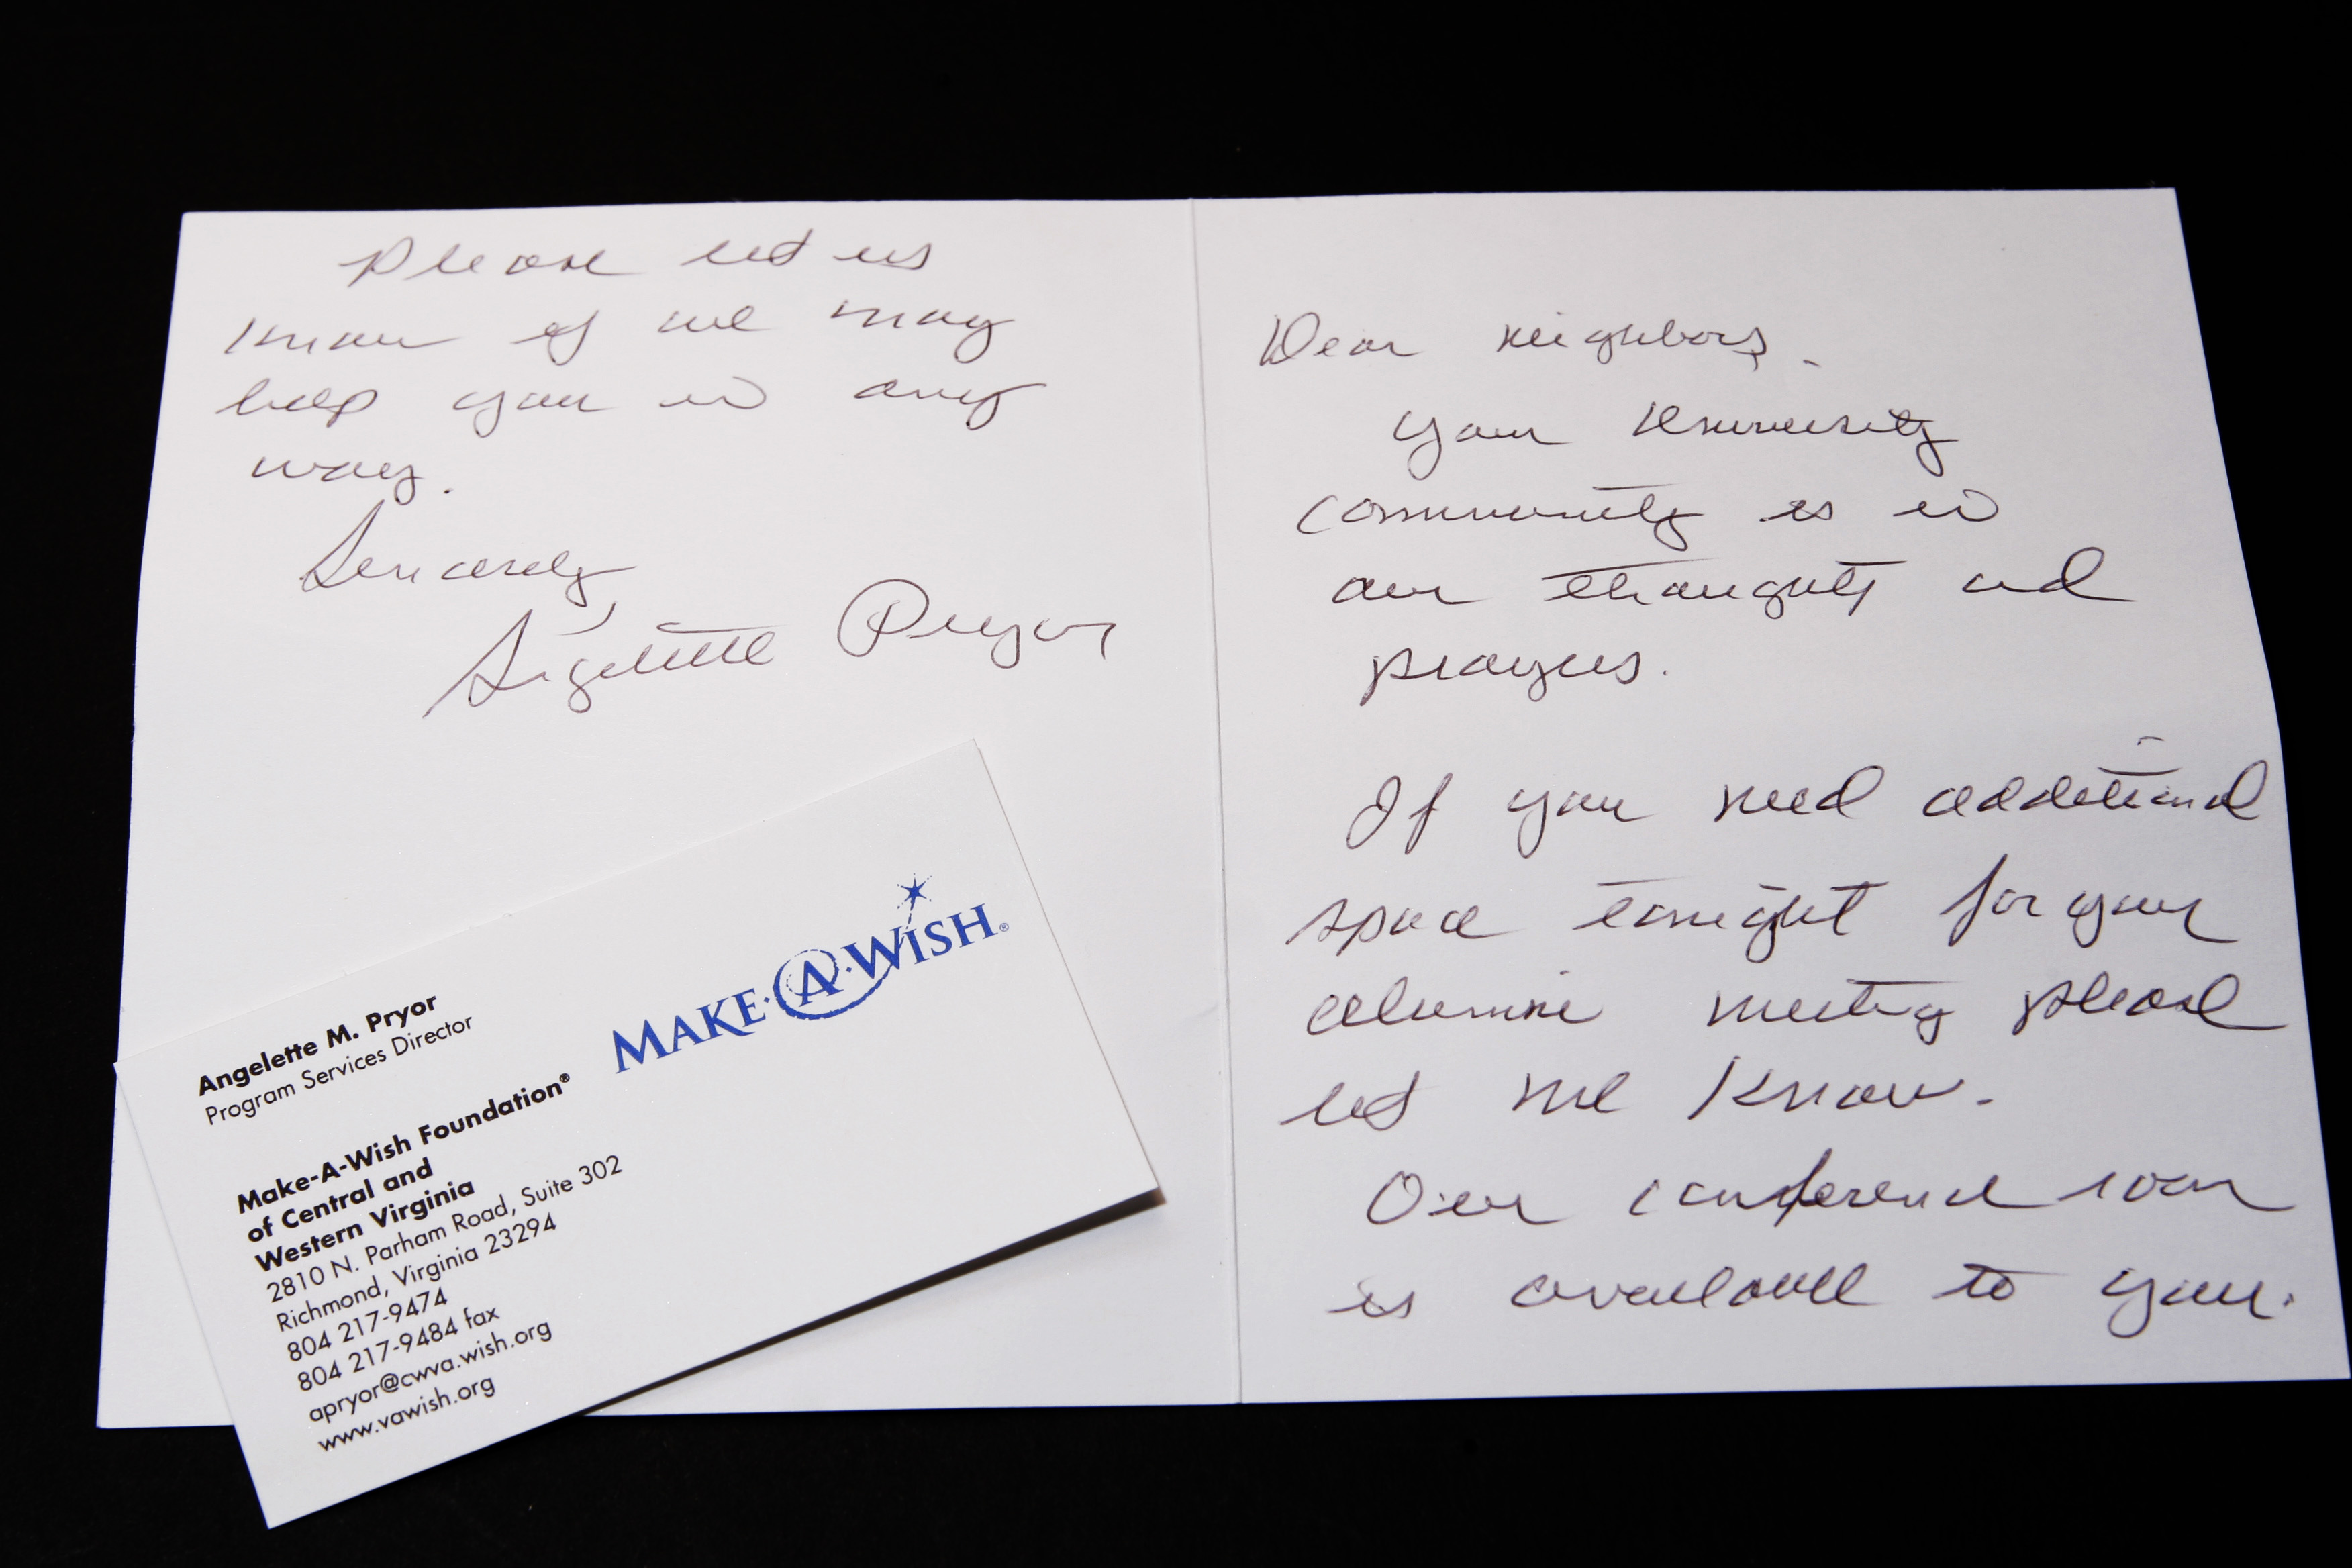 Dear Neighbors,
Your University
community is in
our thoughts and
prayers.
If you need additional
space tonight for your
alumni meeting please
let me know.
Our conference room
is available to you.
Please let us
know if we may
help you in any
way.
Sincerely,
Angelette Pryor
MAKE·A·WISH®
Angelette M. Pryor
Program Services Director
Make-A-Wish Foundation®
of Central and
Western Virginia
2810 N. Parham Road, Suite 302
Richmond, Virginia 23294
804 217-9474
804 217-9484 fax
apryor@cwva.wish.org
www.vawish.org